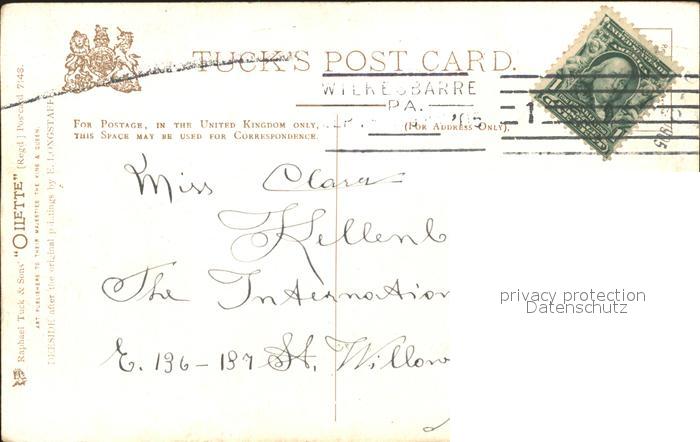 TUCK'S POST CARD.
WILKES-BARRE
PA.
'05
1
FOR POSTAGE, IN THE UNITED KINGDOM ONLY,
THIS SPACE MAY BE USED FOR CORRESPONDENCE.
(FOR ADDRESS ONLY).
Miss Clara
Kellenb
The Internation
E. 136-137 St. Willow
privacy protection
Datenschutz
Raphael Tuck & Sons' "OILETTE" [Regd.] Postcard 7148.
ART PUBLISHERS TO THEIR MAJESTIES THE KING & QUEEN.
DEESIDE after the original paintings by E. LONGSTAFF
1905